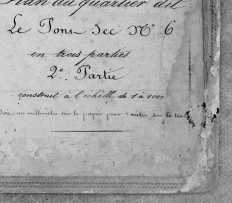 Plan du quartier dit
Le Pons Sec Nº 6
en trois parties
2e. Partie
construit à l'échelle de 1 à 1000
un millimètre sur le papier pour 1 mètre sur le